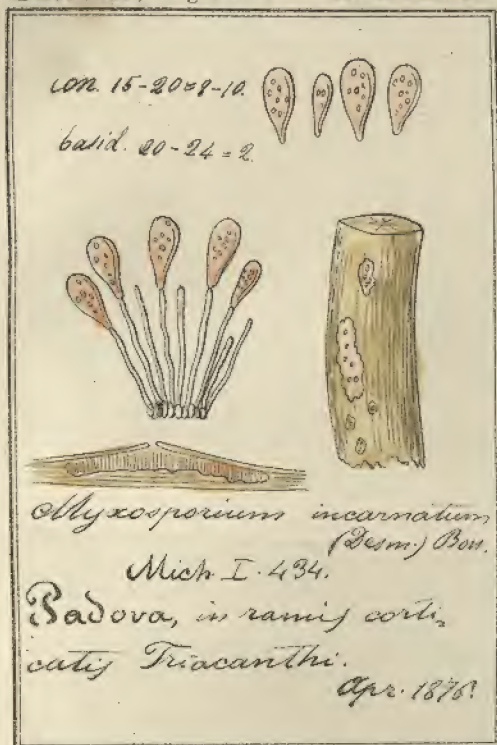 con. 15-20=8-10.
basid. 20-24=2.
Myxosporium incarnatum
(Desm.) Bon.
Mich I. 434.
Padova, in ramis corti-
catis Triacanthi.
Apr. 1876.